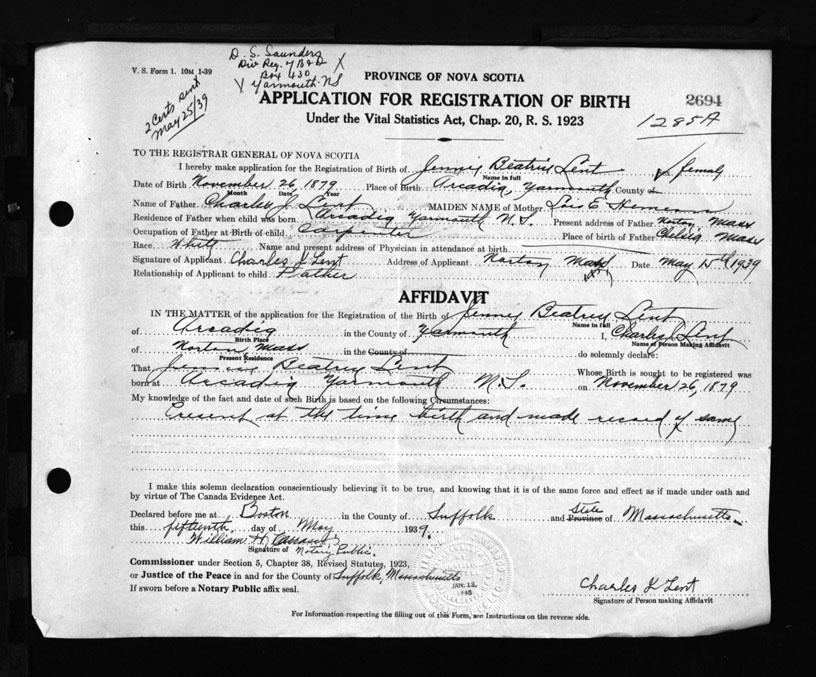 V. S. Form 1. 10M 1-39
D. S. Saunders
Div Reg. of B & D X
Box 430
Yarmouth N S
2 Certs sent
May 25/39
PROVINCE OF NOVA SCOTIA
APPLICATION FOR REGISTRATION OF BIRTH
2694
Under the Vital Statistics Act, Chap. 20, R. S. 1923
1285A
TO THE REGISTRAR GENERAL OF NOVA SCOTIA
I hereby make application for the Registration of Birth of Jennie Beatrice Lent female
Name in full
Date of Birth November 26, 1879 Place of Birth Arcadia, Yarmouth County of
Month Date Year
Name of Father Charles J. Lent MAIDEN NAME of Mother Lois E
Residence of Father when child was born Arcadia Yarmouth N.S. Present address of Father Norton, Mass
Occupation of Father at Birth of child Carpenter Place of birth of Father Chelsea Mass
Race White Name and present address of Physician in attendance at birth
Signature of Applicant Charles J Lent Address of Applicant Norton Mass Date May 15th 1939
Relationship of Applicant to child Father
AFFIDAVIT
IN THE MATTER of the application for the Registration of the Birth of Jennie Beatrice Lent
Name in full
of Arcadia in the County of Yarmouth I, Charles J Lent
Birth Place Name of Person Making Affidavit
of Norton, Mass in the County of do solemnly declare:
Present Residence
That Jennie Beatrice Lent Whose Birth is sought to be registered was
born at Arcadia Yarmouth N.S. on November 26, 1879
My knowledge of the fact and date of such Birth is based on the following Circumstances:
Present at the time birth and made record of same
I make this solemn declaration conscientiously believing it to be true, and knowing that it is of the same force and effect as if made under oath and
by virtue of The Canada Evidence Act.
Declared before me at Boston in the County of Suffolk and State Province of Massachusetts
this fifteenth day of May 1939.
William H.
Signature of Notary Public.
Commissioner under Section 5, Chapter 38, Revised Statutes, 1923,
or Justice of the Peace in and for the County of Suffolk, Massachusetts
If sworn before a Notary Public affix seal.
JAN. 12,
1945
Charles J Lent
Signature of Person making Affidavit
For Information respecting the filling out of this Form, see Instructions on the reverse side.